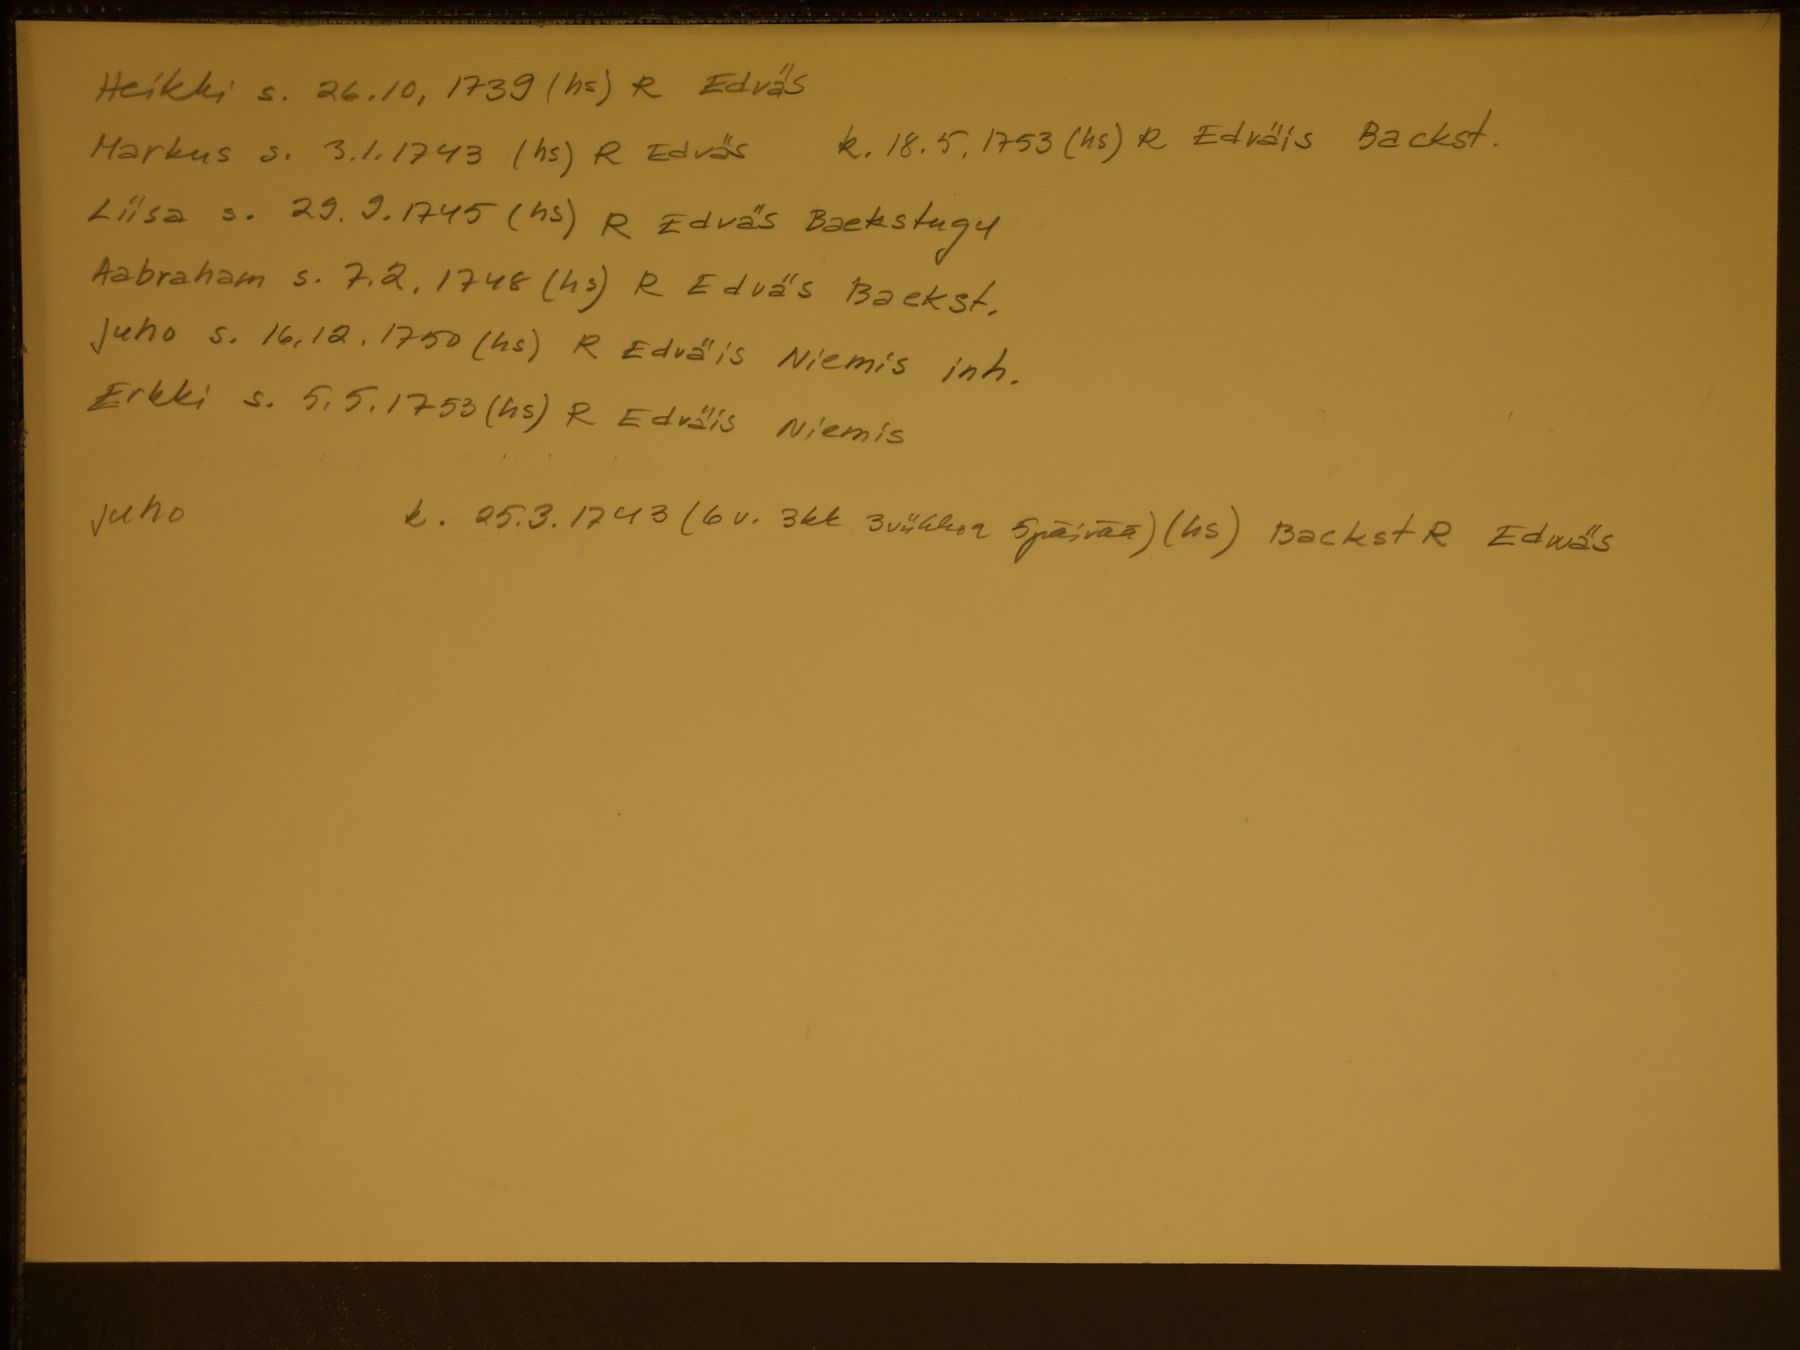 Heikki s. 26.10, 1739 (hs) R Edväs
Markus s. 3.1.1743 (hs) R Edväs k. 18.5, 1753 (hs) R Edväis Backst.
Liisa s. 29. 9. 1745 (hs) R Edväs Backstugu
Aabraham s. 7.2, 1748 (hs) R Edväs Backst.
Juho s. 16,12. 1750 (hs) R Edväis Niemis inh.
Erkki s. 5.5.1753 (hs) R Edväis Niemis
Juho k. 25.3.1743 (6 v. 3kk 3viikkoa 5päivää) (hs) Backst R Edwäs